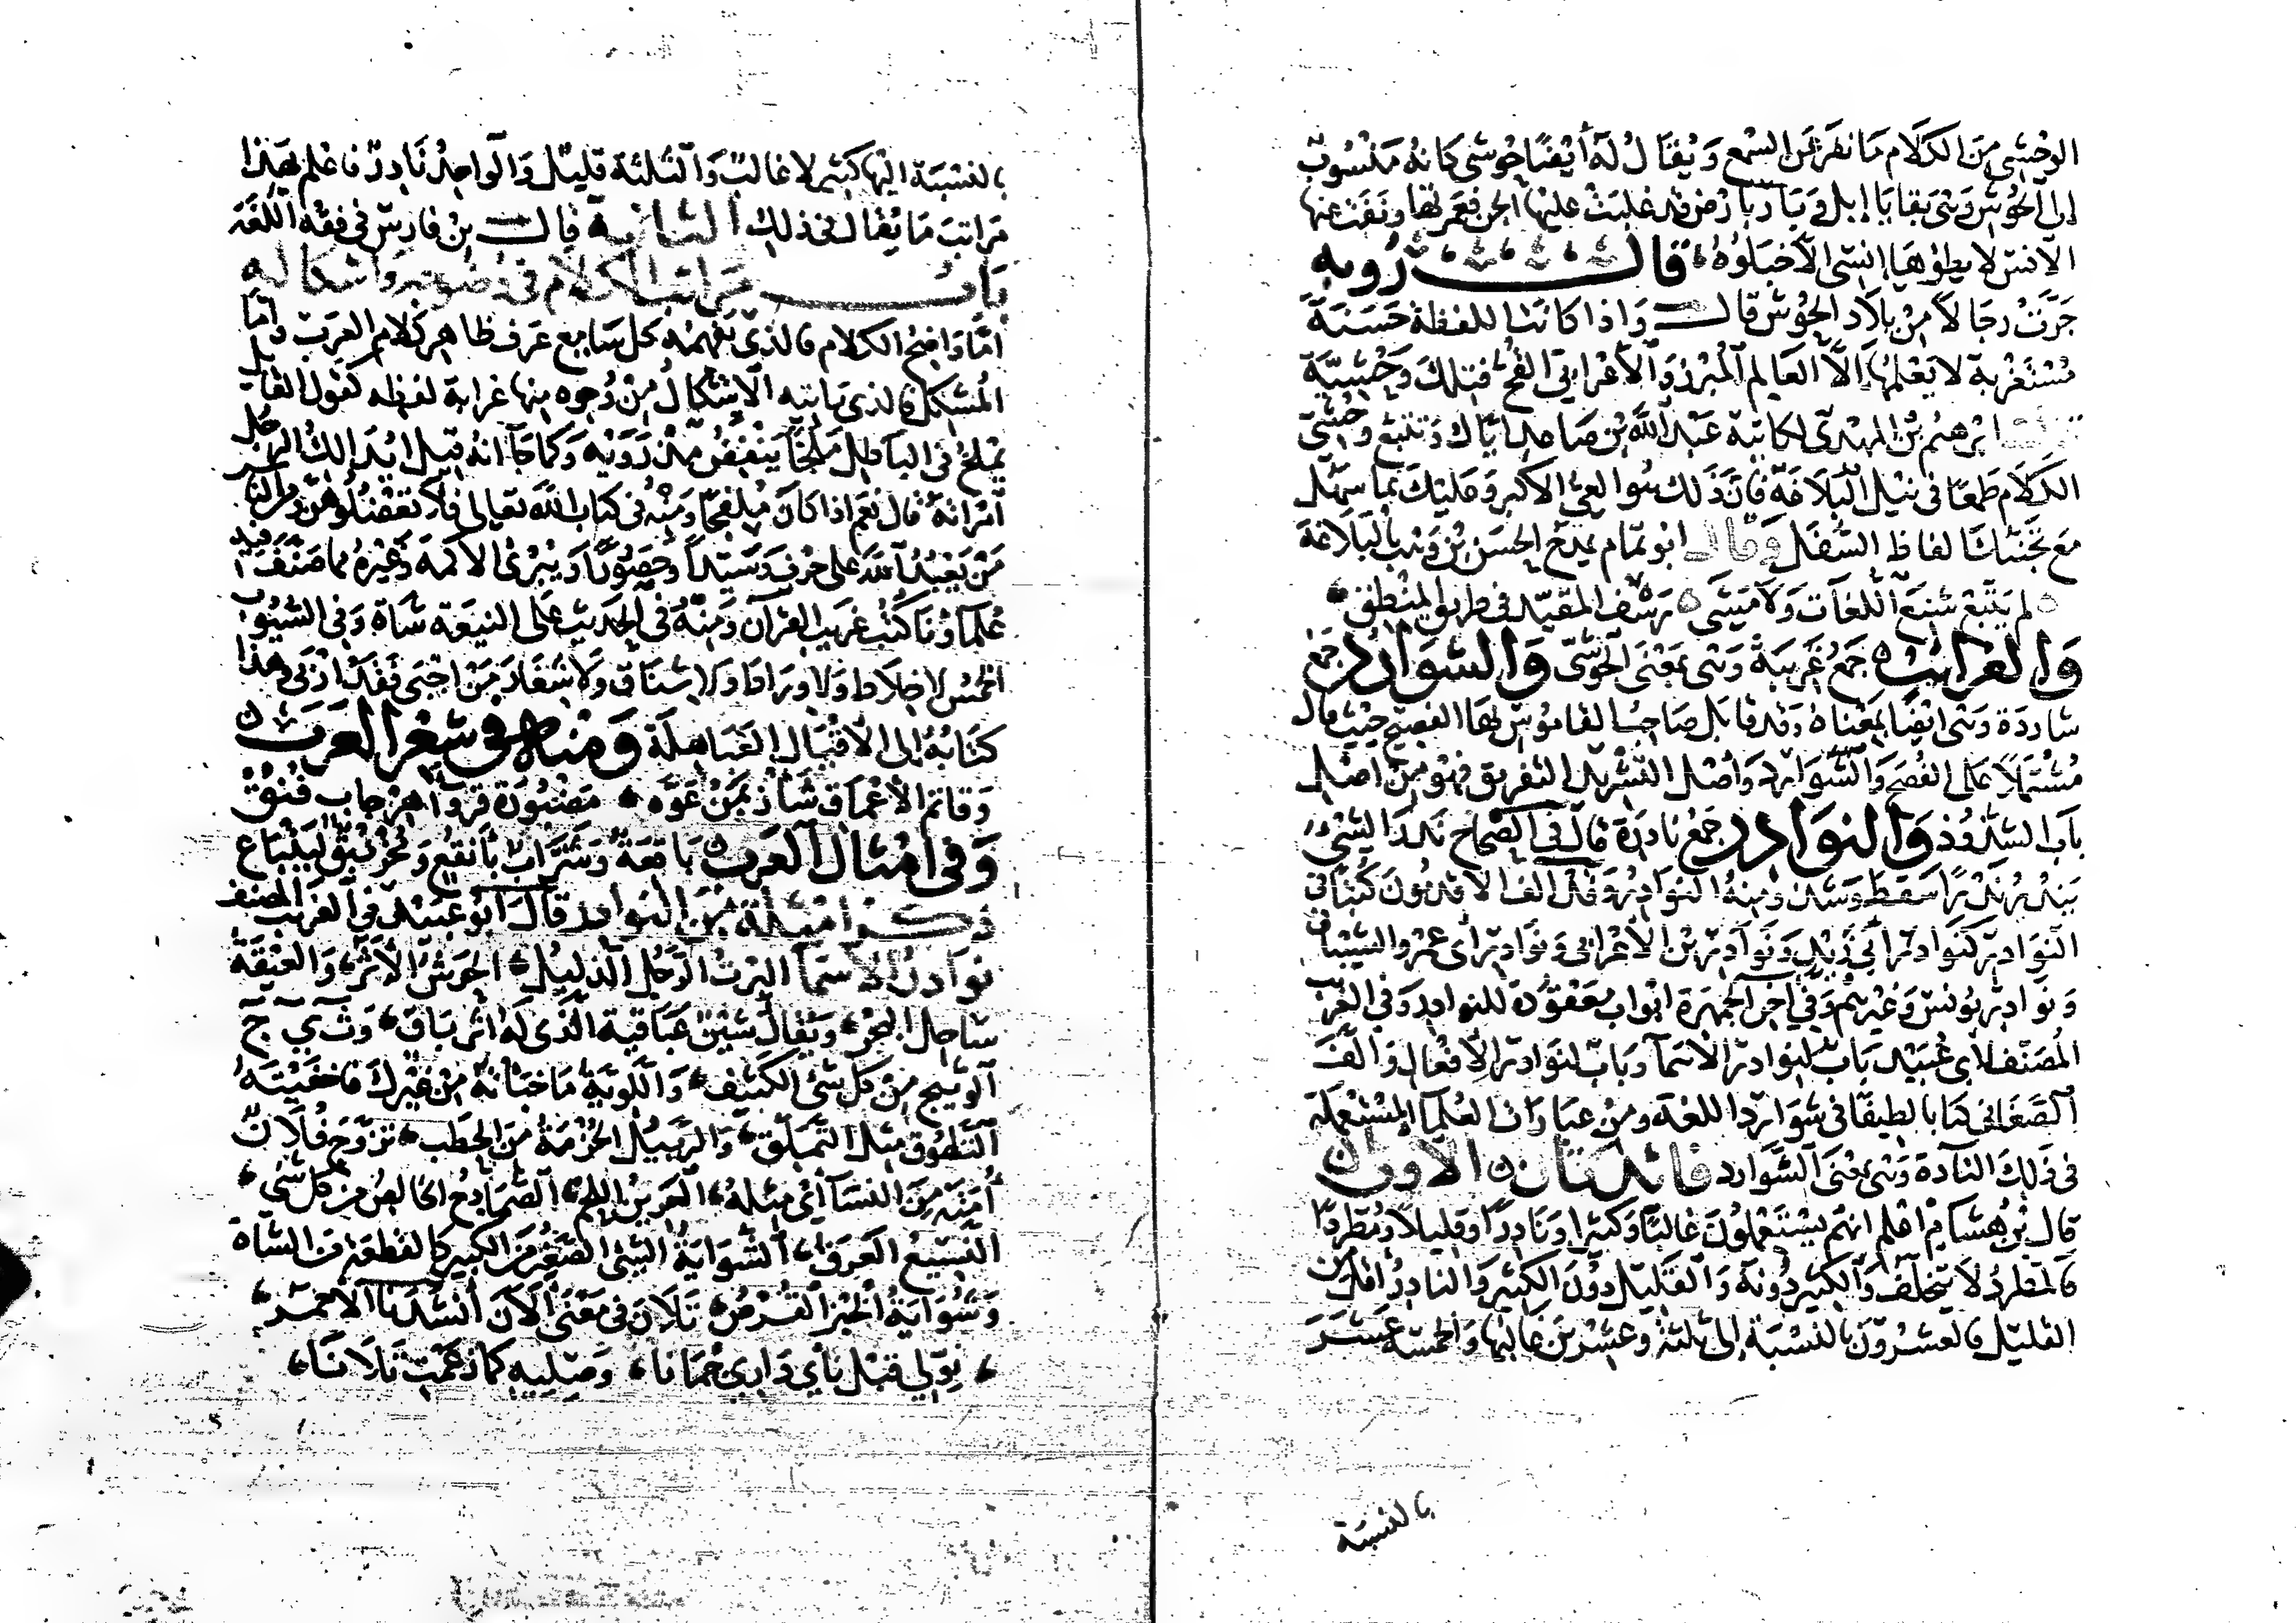 الوحشى من الكلام ما نفر عن السمع ويقال له أيضا حوشى كانه منسوب
الى الحوش وهى بقايا إبل وبار بارض قد غلبت عليها الجن فعمرتها ونفت عنها
الانس لا يطؤها إنسى الا خبلوه قال رؤبه
جرت رجالا من بلاد الحوش قال واذا كانت اللفظة حسنة
مستغربة لا يعلمها الا العالم المبرز والأعرابى القح فتلك وحشية
ابرهيم بن المهدى لكاتبه عبد الله بن صاعد اياك وتتبع وحشى
الكلام طمعا فى نيل البلاغة فان ذلك هو العى الاكبر وعليك بما سهل
مع تجنبك الفاظ السفل وقال ابو تمام يمدح الحسن بن وهب بالبلاغة
لم يتبع شنع اللغات ولا مشى رسف المقيد فى طريق المنطق
والغرائب جمع غريبة وهى بمعنى الحوشى والشوارد جمع
شاردة وهى ايضا بمعناه وقد قابل صاحب القاموس بها الفصيح حيث قال
مشتملا على الفصح والشوارد وأصل التشريد التفريق فهو من اصل
باب الشذوذ والنوادر جمع نادرة قال فى الصحاح ندر الشىء
يندر ندرا سقط وشذ ومنه النوادر وقد الف الاقدمون كتبا فى
النوادر كنوادر أبى زيد ونوادر بن الأعرابى ونوادر ابى عمرو الشيبانى
ونوادر يونس وغيرهم وفى آخر الجمهرة ابواب معقودة للنوادر وفى الغريب
المصنف لابى عبيد باب لنوادر الاسما وباب لنوادر الافعال والف
الصغانى كتابا لطيفا فى شوارد اللغة ومن عبارات العلما المستعملة
فى ذلك النادة وهى بمعنى الشوارد فائدتان الاولى
قال بن هشام اعلم انهم يستعملون غالبا وكثيرا ونادرا وقليلا ومطردا
فالمطرد لا يتخلف والكثير دونه والقليل دون الكثير والنادر اقل من
القليل فالعشرون بالنسبة الى ثلثة وعشرين غالبها والخمسة عشر
بالنسبة
بالنسبة اليها كثير لا غالب والثلثة قليل والواحد نادر فاعلم بهذا
مراتب ما يقال فى ذلك الثانية قال بن فارس فى فقه اللغة
باب مراتب الكلام فى وضوحه واشكاله
اما واضح الكلام فالذى يفهمه كل سامع عرف ظاهر كلام العرب واما
المشكل فالذى ياتيه الاشكال من وجوه منها غرابة لفظه كقول القايل
يملخ فى الباطل ملخا ينفض مذرويه وكما جآ انه قيل ايدالك الرجل
امرأته قال نعم اذا كان ملفجا ومنه فى كتاب الله تعالى فلا تعضلوهن ومن الناس
من يعبد الله على حرف وسيدا وحصورا ويبرئ الاكمه وغيره مما صنف فيه
علماونا كتب غريب القرآن ومنه فى الحديث على التيعة شاة وفى السيوب
الخمس لا خلاط ولا وراط ولا شناق ولا شغار من اجبى فقد اربى وهذا
كتابه الى الاقيال العباهلة ومنه فى شعر العرب
وقاتم الأعماق شأز بمن عوه مضبورة قروآ هرجاب فنق
وفى امثال العرب باقعة وشراب بأنقع ومخرنبق لينباع
ذكر امثلة من النوادر قال ابو عبيد فى الغريب المصنف
نوادر الاسمآ البرت الرجل الدليل الحرش الأثر والعيقة
ساحل البحر ويقال شين عباقية الذى له اثر باق
الوثيج من كل شى الكثيف واللوية ما خبأته من غيرك فاخفيته
الحزمة من الحطب تزوج فلان
لمته من النسآ أى مثله الصمادح الخالص من كل شى
الشواية الشئ الصغير من الكبير كالقطعة من الشاة
وشواية الخبز القرص تلان فى معنى الآن أنشدنا الاحمر
نولى قبل نأى دارى جمانا وصليه كما زعمت تلانا